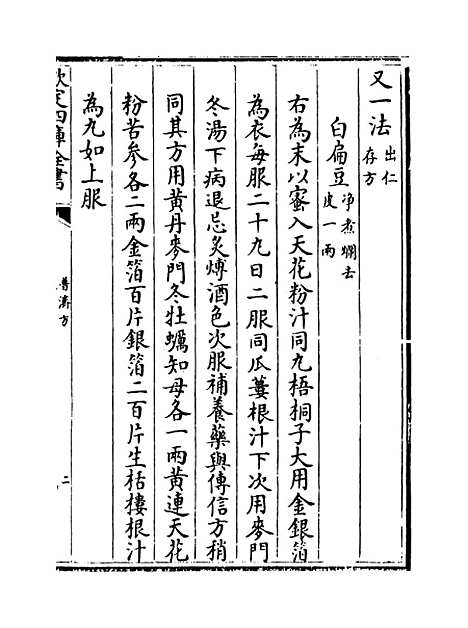 又一法出仁存方
白扁豆净煮爛去皮一兩
右為末以蜜入天花粉汁同丸梧桐子大用金銀箔
為衣每服二十九日二服同瓜蔞根汁下次用麥門
冬湯下病退忌炙煿酒色次服補養藥與傳信方稍
同其方用黄丹麥門冬牡蠣知母各一兩黄連天花
粉苦參各二兩金箔百片銀箔二百片生栝樓根汁
為丸如上服
欽定四庫全書
普濟方
二